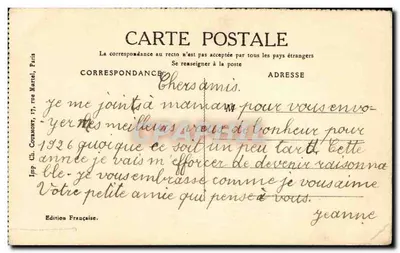 CARTE POSTALE
La correspondance au recto n'est pas acceptée par tous les pays étrangers
Se renseigner à la poste
CORRESPONDANCE ADRESSE
Chers amis.
Je me joints à maman pour vous envo-
yer mes meilleurs vœux de bonheur pour
1926 quoique ce soit un peu tard. Cette
année je vais m'efforcer de devenir raisonna
ble. Je vous embrasse comme je vous aime
Votre petite amie qui pense à vous.
Jeanne
Edition Française.
Imp. Ch. Courmont, 17, rue Martel, Paris